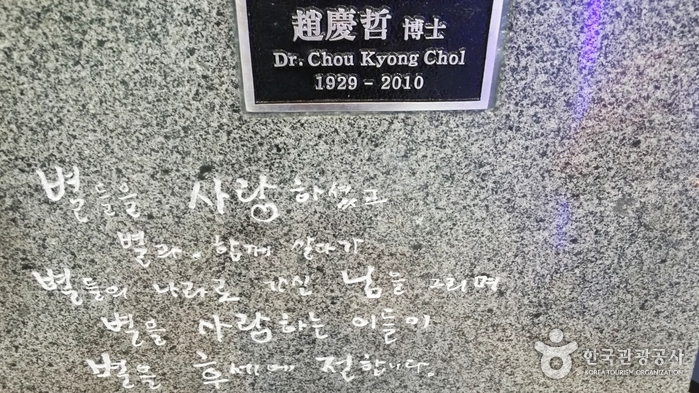 趙慶哲 博士
Dr. Chou Kyong Chol
1929 - 2010
별들을 사랑하셨고
별과 함께 살다가
별들의 나라로 가신 님을 그리며
별을 사랑하는 이들이
별을 후세에 전합니다.
한국관광공사
KOREA TOURISM ORGANIZATION